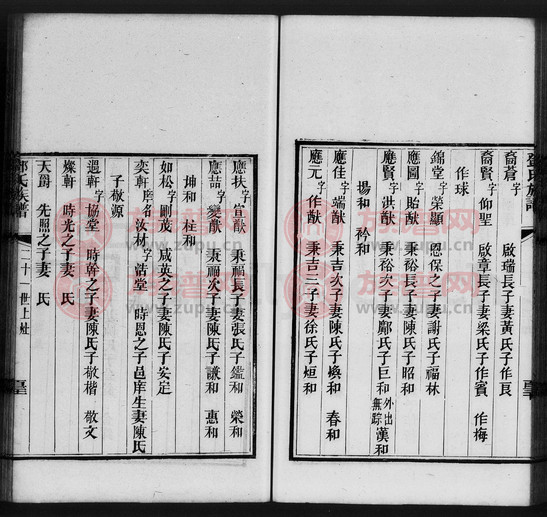 鄧氏族譜
裔蒼字 啟瑞長子妻黃氏子作良
裔賢字仰聖 啟章長子妻梁氏子作賓 作梅
作球
錦堂字榮顯 恩保之子妻謝氏子福林
應圖字貽猷 秉裕長子妻陳氏子昭和
應賢字洪猷 秉裕次子妻鄺氏子巨和外出無踪漢和
揚和 衿和
應佳字端猷 秉吉次子妻陳氏子煥和 春和
應元字作猷 秉吉三子妻徐氏子烜和
應扶字宣猷 秉福長子妻張氏子鑑和 榮和
應喆字變猷 秉福次子妻陳氏子謙和 惠和
坤和 柱和
如松字剛茂 成英之子妻陳氏子安定
奕新字席名汝材字浩堂 時恩之子邑庠生妻陳氏
子敬源
遇軒字協堂 時幹之子妻陳氏子敬楷 敬文
燦軒 時光之子妻 氏
天爵 先照之子妻 氏
鄧氏族譜 二十一世上